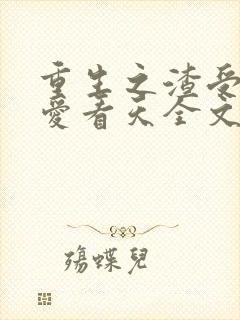 重生之渣受
愛春天全文
殤蝶兒